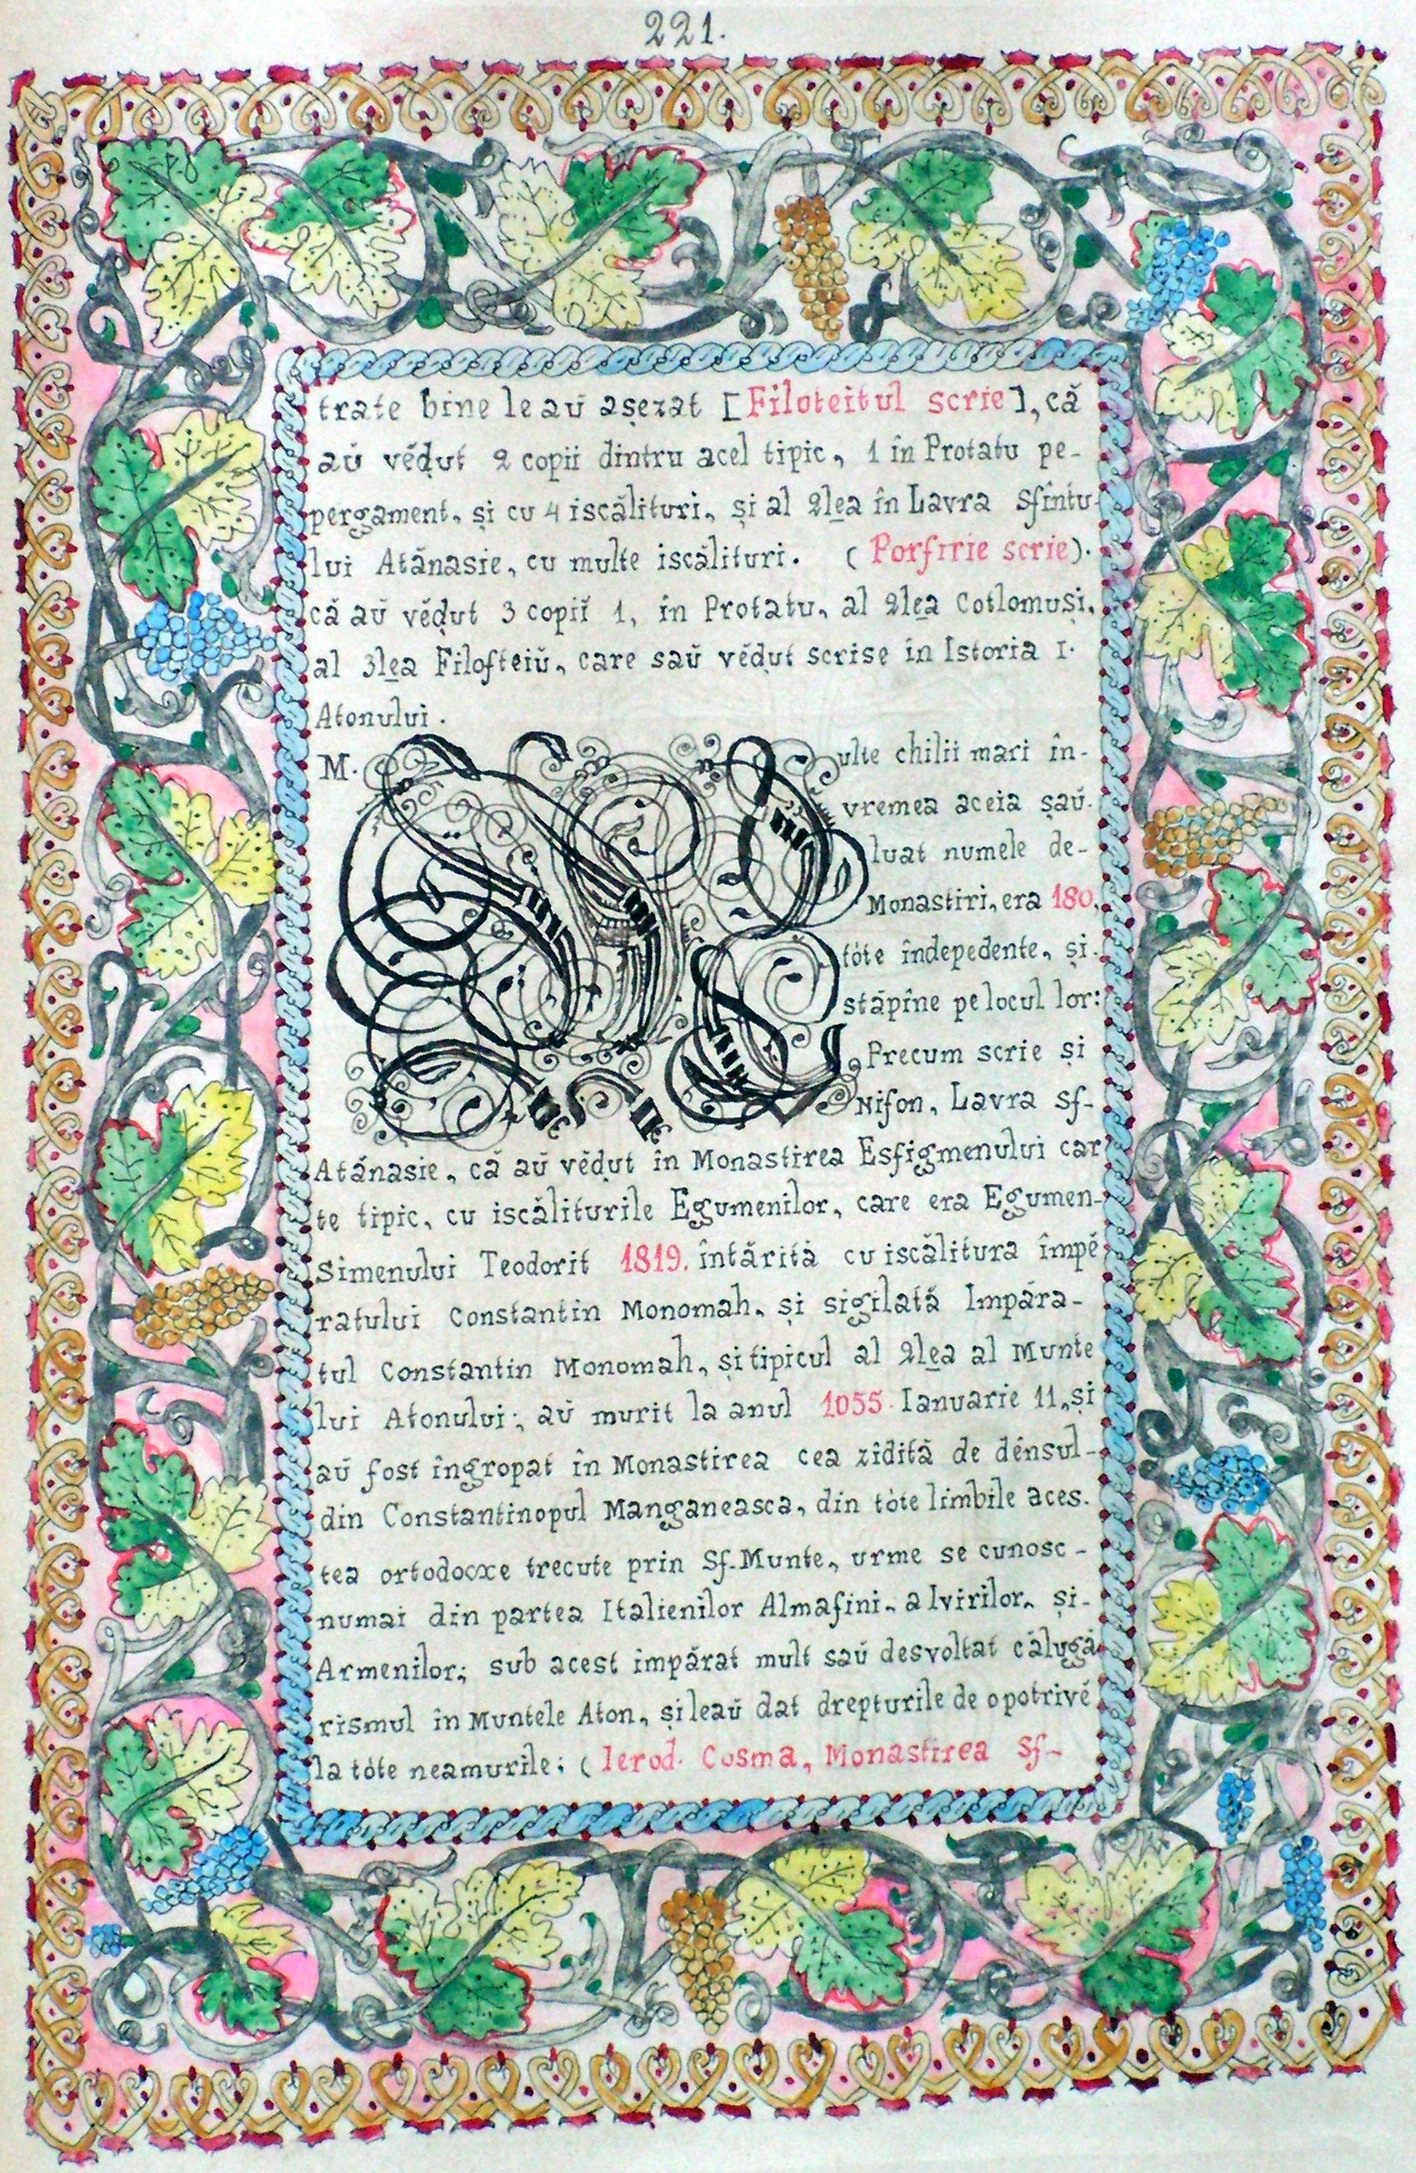 221.
trate bine le aŭ așezat [Filoteitul scrie], că
aŭ vĕḑut 2 copii dintru acel tipic, 1 în Protatu pe-
pergament, și cu 4 iscălituri, și al 2lea în Lavra Sfîntu-
lui Atănasie, cu multe iscălituri. (Porfirie scrie).
că aŭ vĕḑut 3 copiĭ 1, în Protatu, al 2lea Cotlomuși,
al 3lea Filofteiŭ, care saŭ vĕḑut scrise în Istoria I.
Atonului.
M. ulte chilii mari în-
vremea aceia saŭ
luat numele de-
Monastiri, era 180,
tóte îndepedente, și.
stăpîne pe locul lor:
Precum scrie și
Nifon, Lavra Sf-
Atănasie, că aŭ vĕḑut în Monastirea Esfigmenului car
te tipic, cu iscăliturile Egumenilor, care era Egumen-
Simenului Teodorit 1819. întărită cu iscălitura împĕ
ratului Constantin Monomah, și sigilată Impăra-
tul Constantin Monomah, și tipicul al 2lea al Munte
lui Atonului; aŭ murit la anul 1055 Ianuarie 11, și
aŭ fost îngropat în Monastirea cea zidită de dênsul-
din Constantinopul Manganeasca, din tóte limbile aces.
tea ortodocxe trecute prin Sf-Munte, urme se cunosc-
numai din partea Italienilor Almafini, a Ivirilor, și-
Armenilor; sub acest împărat mult saŭ desvoltat călugă
rismul în Muntele Aton, și leaŭ dat drepturile de opotrivĕ
la tóte neamurile; (Ierod. Cosma, Monastirea Sf-